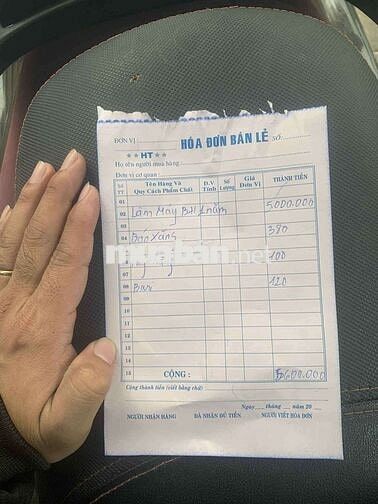 ĐƠN VỊ
HÓA ĐƠN BÁN LẺ SỐ
★★HT★★
Họ tên người mua hàng:
Đơn vị cơ quan:
Số TT Tên Hàng Và Quy Cách Phẩm Chất Đ.V Tính Số Lượng Giá Đơn Vị THÀNH TIỀN
01
02 Làm Máy BH 1 năm 5.000.000
03
04 Báo Xăng 380
05
muaban.net
100
07
08 120
09
10
11
12
13
14
15 CỘNG : 5600.000
Cộng thành tiền (viết bằng chữ)
Ngày tháng năm 20
NGƯỜI NHẬN HÀNG ĐÃ NHẬN ĐỦ TIỀN NGƯỜI VIẾT HÓA ĐƠN